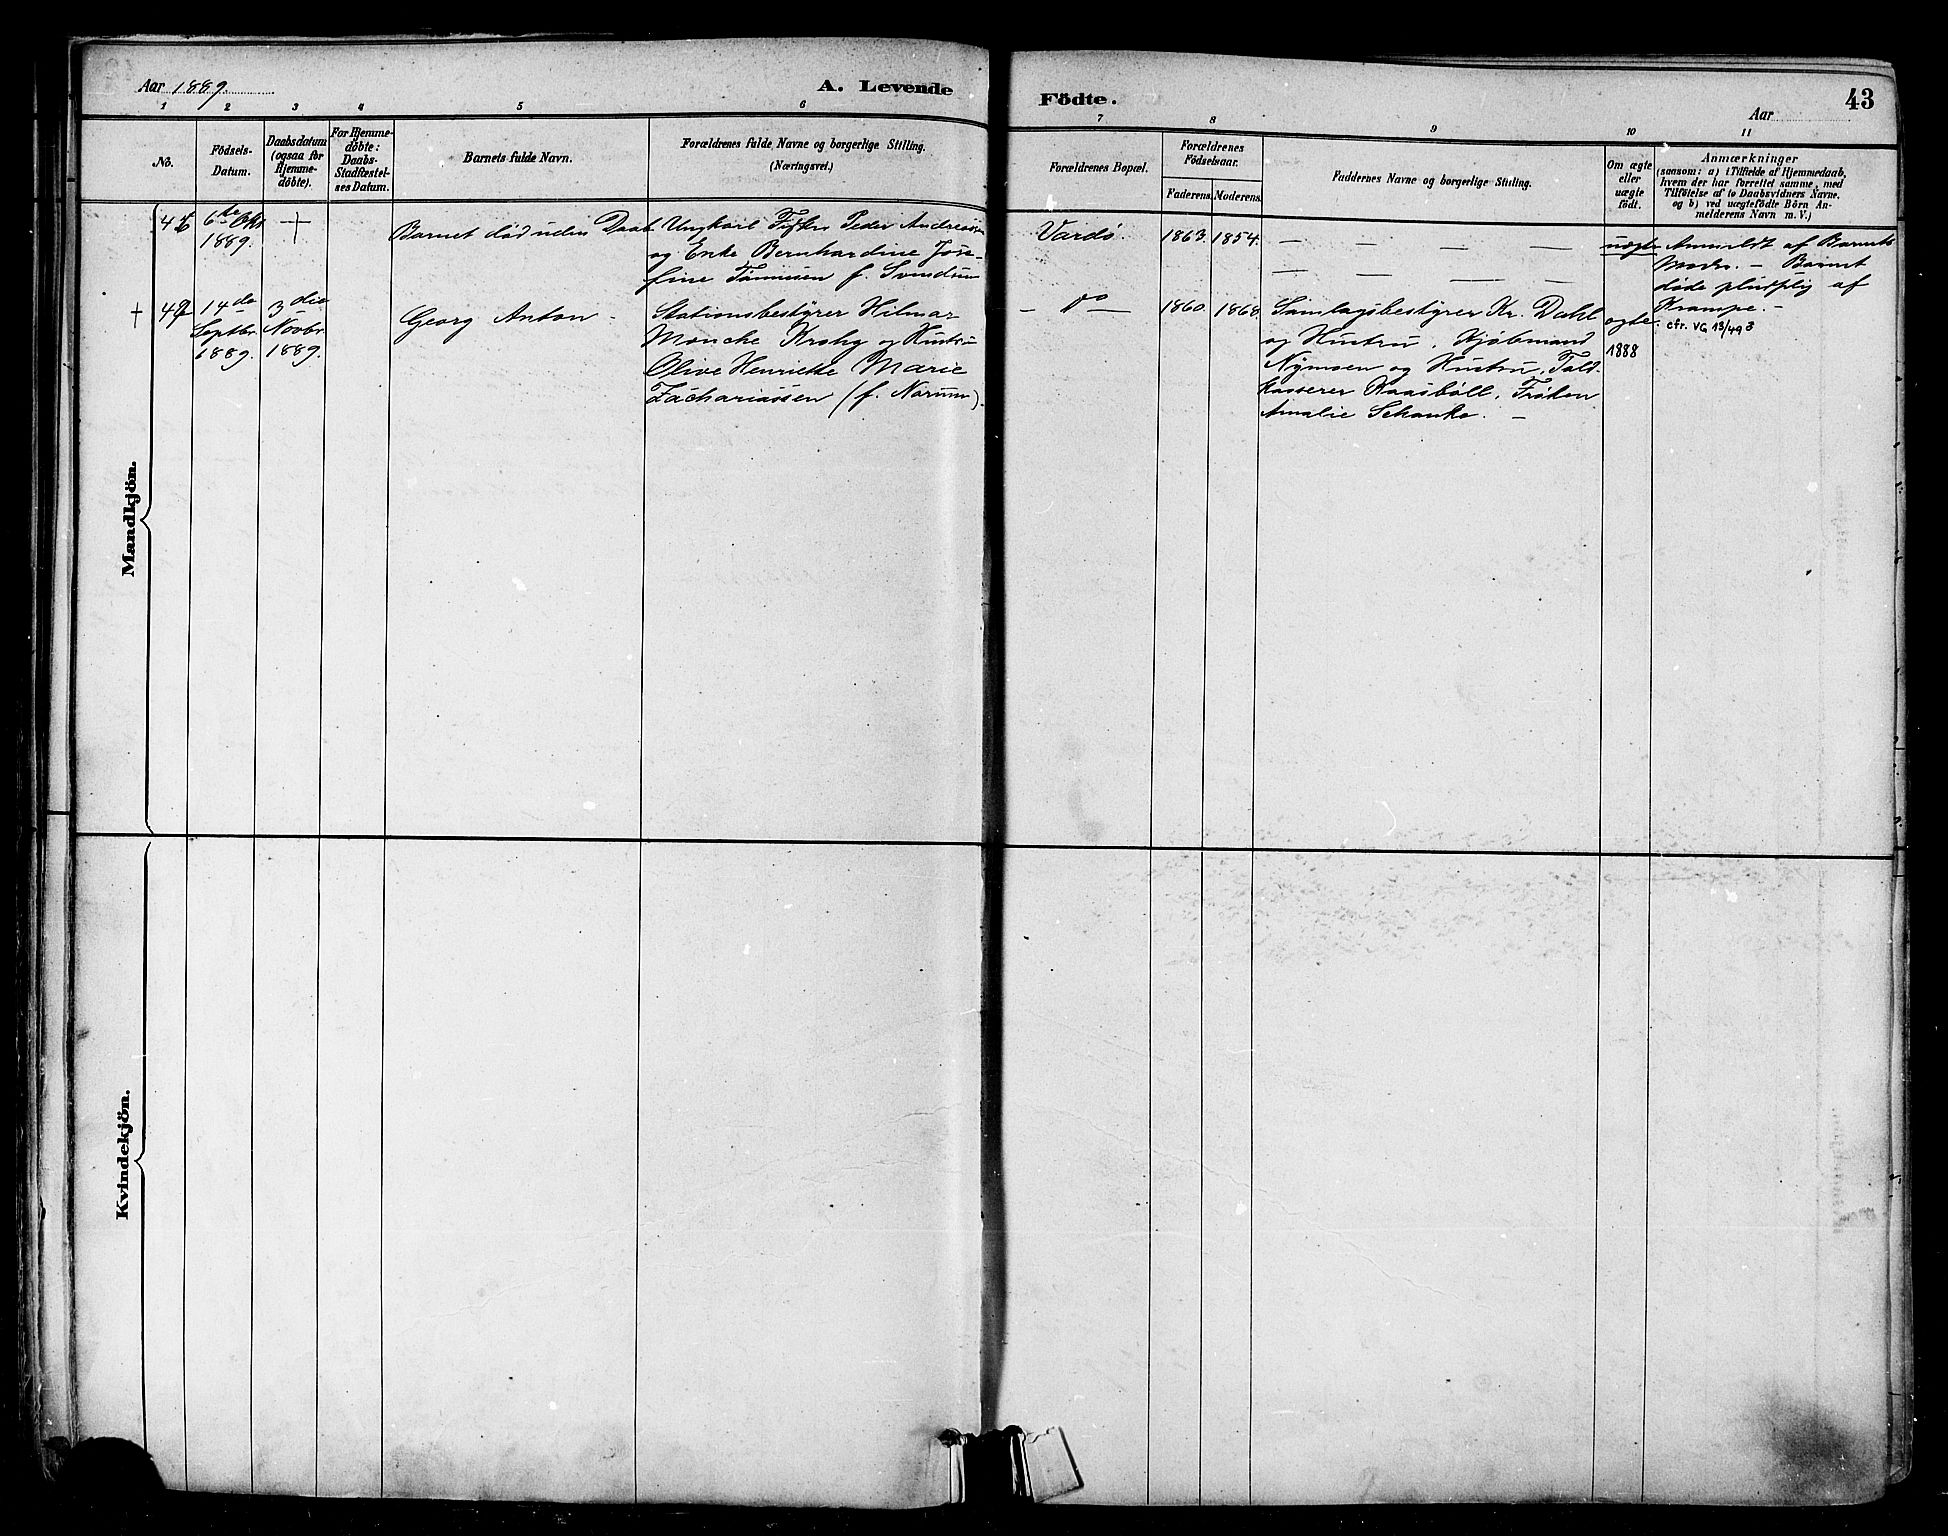 Aar 1889.
A. Levende
Födte.
Aar
43
1 2 3 4 5 6 7 8 9 10 11
No.
Födsels-
Datum.
Daabsdatum
(ogsaa for
Hjemme-
döbte).
For Hjemme-
döbte:
Daabs-
Stadfæstel-
ses Datum.
Barnets fulde Navn.
Forældrenes fulde Navne og borgerlige Stilling.
(Næringsvei.)
Forældrenes Bopæl.
Forældrenes
Födselsaar.
Faderens. Moderens.
Faddernes Navne og borgerlige Stilling.
Om ægte
eller
uægte
födt.
Anmærkninger
(saasom: a) i Tilfælde af Hjemmedaab,
hvem der har forrettet samme, med
Tilföielse af to Daabsvidners Navne.
og b) ved uægtefödte Börn An-
melderens Navn m. V.)
Mandkjön.
6te
1889.
Barnet död uden Daab
Ungkarl Fisker Peder Andreassen
og Enke Bernhardine Jose-
fine f.
Vardö.
1863. 1854.
uægte
Anmeldt af Barnets
Moder. — Barnet
döde pludselig af
Krampe. —
14de
Septbr.
1889.
3die
Novbr.
1889.
Georg Anton —
Stationsbestyrer Hilmar
Mönche Krohg og Hustru
Olive Henriette Marie
Zachariassen (f. Norum).
— do —
1860. 1868.
Samlagsbestyrer Kr. Dahl
og Hustru, Kjöbmand
Nymoen og Hustru, Told-
kasserer Raasböll, Fröken
Amalie Schanke. —
ægte.
1888
cfr. VG 13/49 3
Kvindekjön.